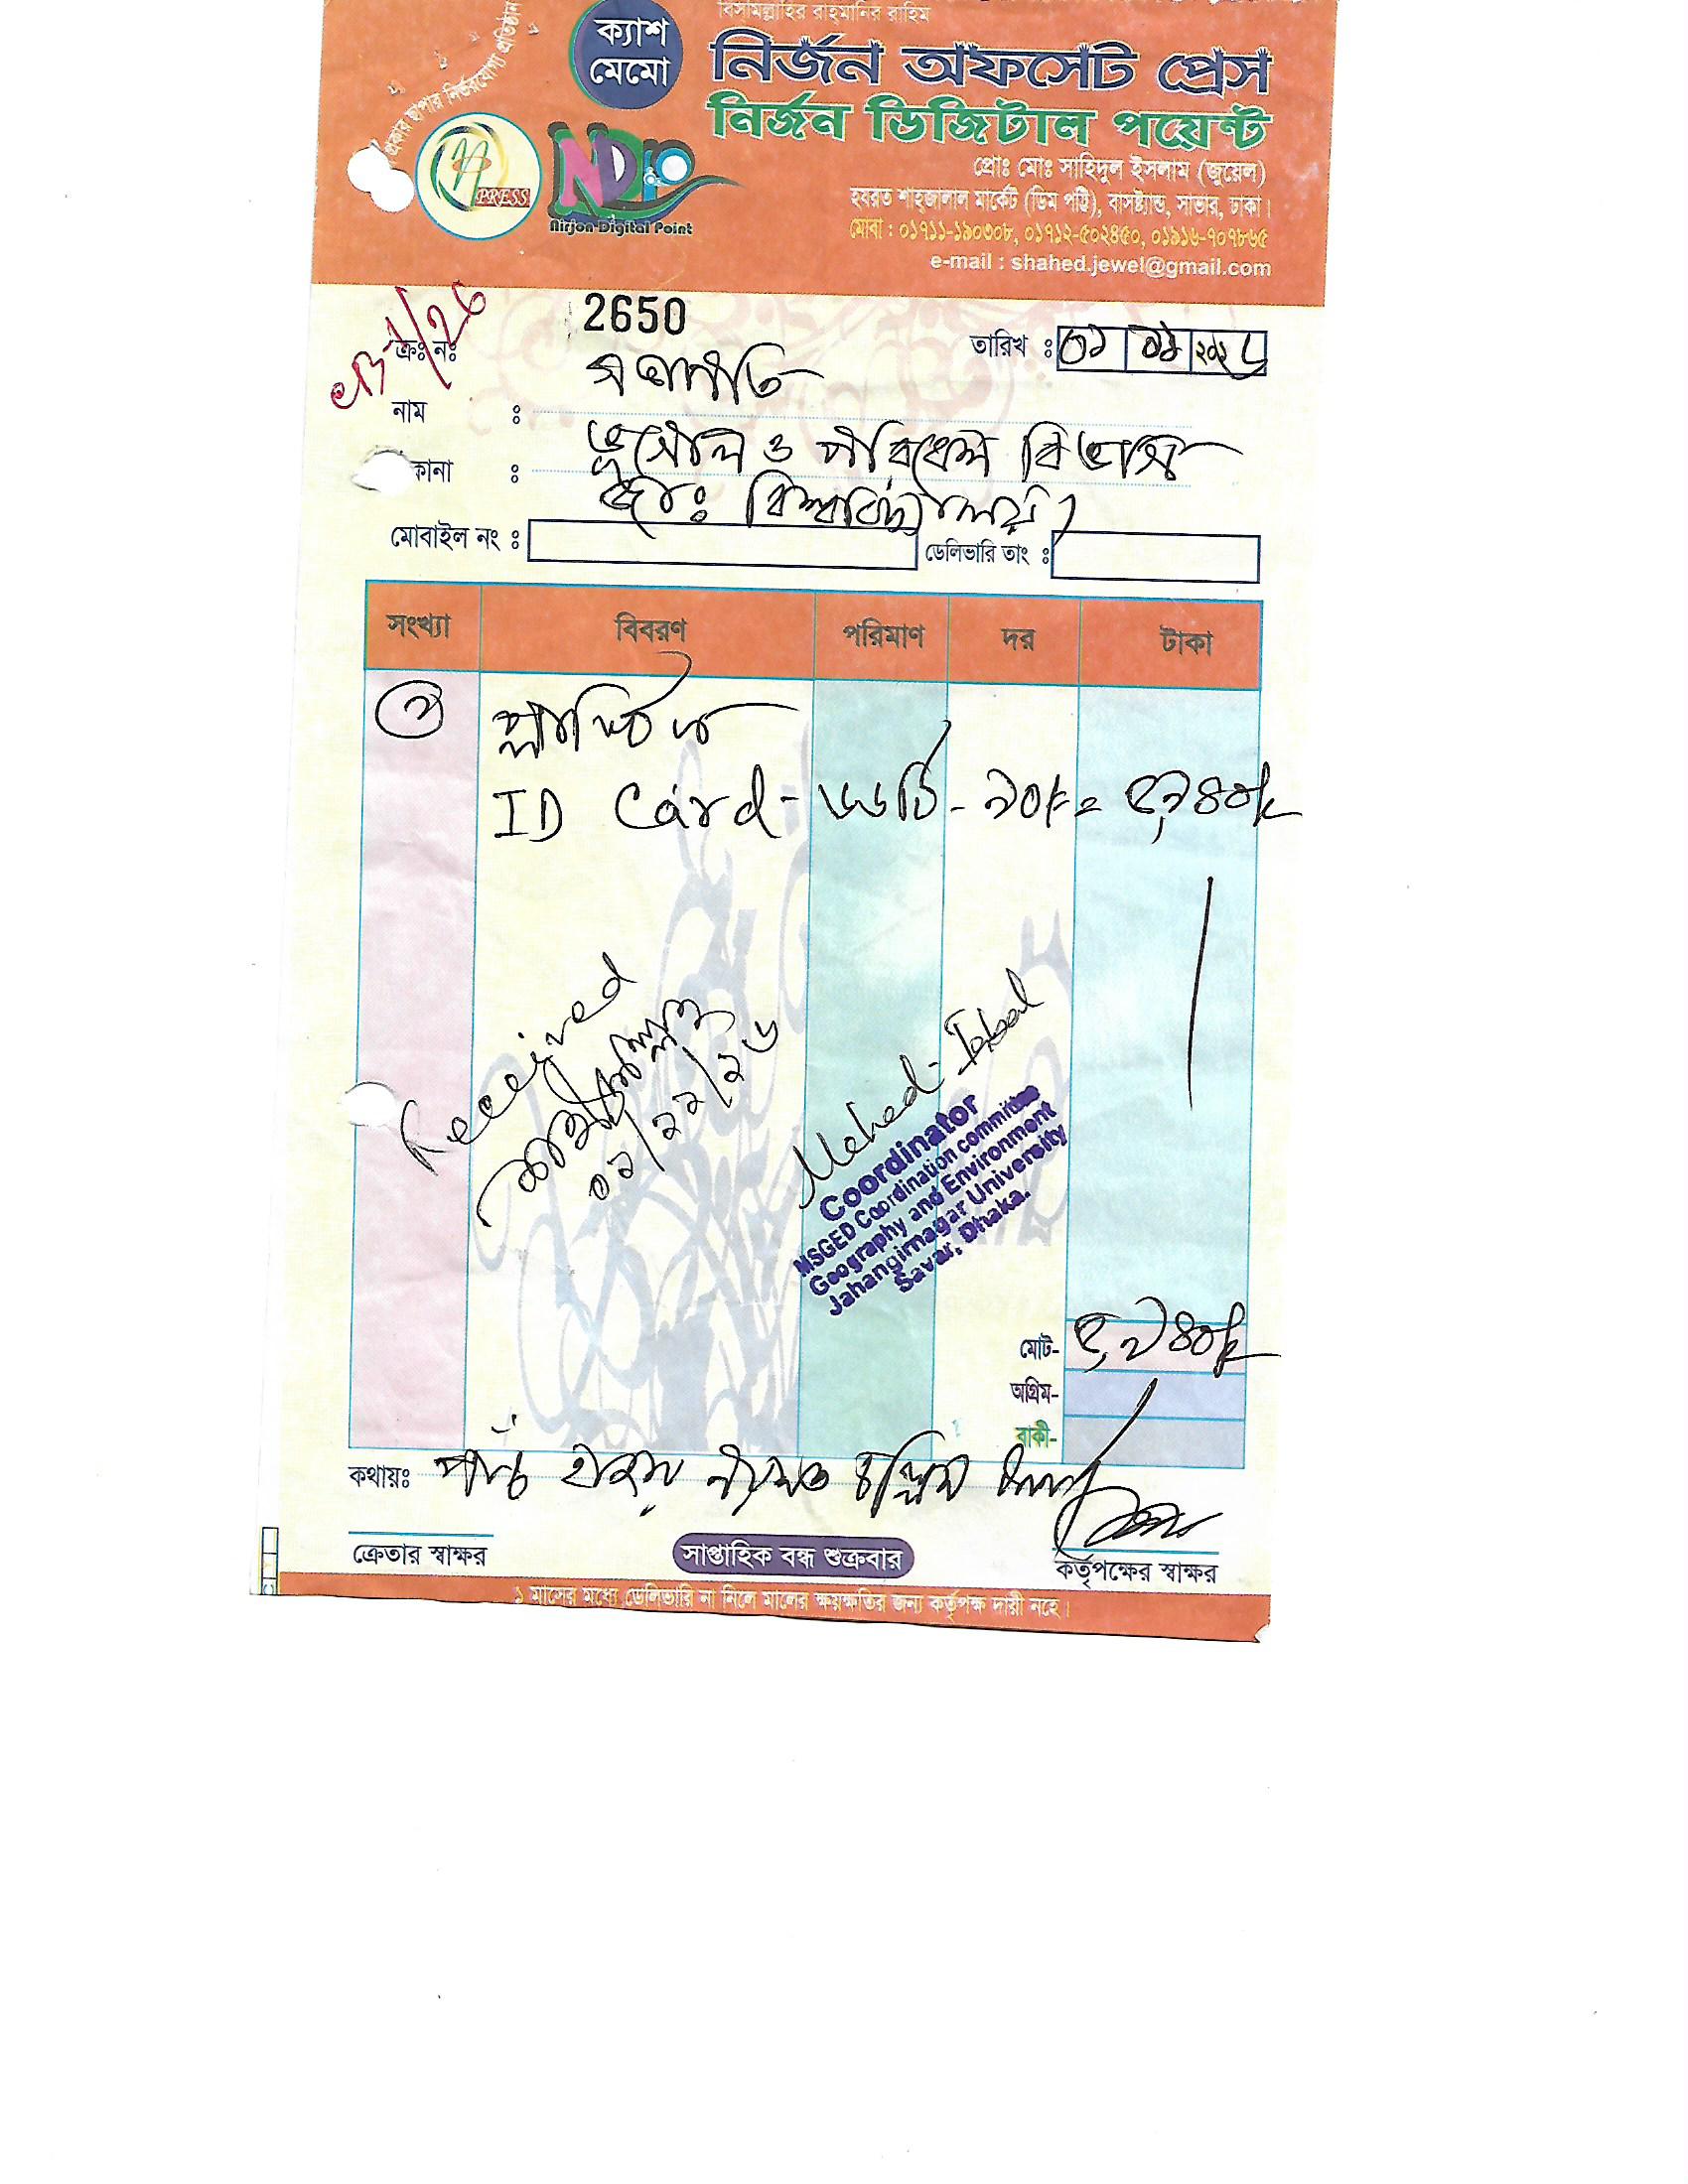 বিসমিল্লাহির রাহমানির রাহিম
ক্যাশ মেমো
প্রকার ছাপার নির্ভরযোগ্য প্রতিষ্ঠান
নির্জন অফসেট প্রেস
নির্জন ডিজিটাল পয়েন্ট
PRESS
NDP
Nirjon Digital Point
প্রোঃ মোঃ সাহিদুল ইসলাম (জুয়েল)
হযরত শাহ্জালাল মার্কেট (ডিম পট্টি), বাসষ্ট্যান্ড, সাভার, ঢাকা।
মোবা : ০১৭১১-১৯০৩০৮, ০১৭১২-৫০২৪৫০, ০১৯১৬-৭০৭৮৬৫
e-mail : shahed.jewel@gmail.com
ক্রঃ নঃ 2650
তারিখ ঃ ০১ ০১ ২০২৬
নাম ঃ সভাপতি
কানা ঃ ভূগোল ও পরিবেশ বিভাগ
জাঃ বিশ্ববিদ্যালয়।
মোবাইল নং ঃ ডেলিভারি তাং ঃ
সংখ্যা বিবরণ পরিমাণ দর টাকা
প্লাষ্টিক
ID Card - ৬৬টি - ৯০/= ৫,৯৪০/=
Received
০১/১১/২৬
Mehedi Iqbal
Coordinator
MSGED Coordination committee
Geography and Environment
Jahangirnagar University
Savar, Dhaka.
মোট- ৫,৯৪০/=
অগ্রিম-
বাকী-
কথায়ঃ পাঁচ হাজার নয়শত চল্লিশ টাকা
ক্রেতার স্বাক্ষর
সাপ্তাহিক বন্ধ শুক্রবার
কর্তৃপক্ষের স্বাক্ষর
১ মাসের মধ্যে ডেলিভারি না নিলে মালের ক্ষয়ক্ষতির জন্য কর্তৃপক্ষ দায়ী নহে।